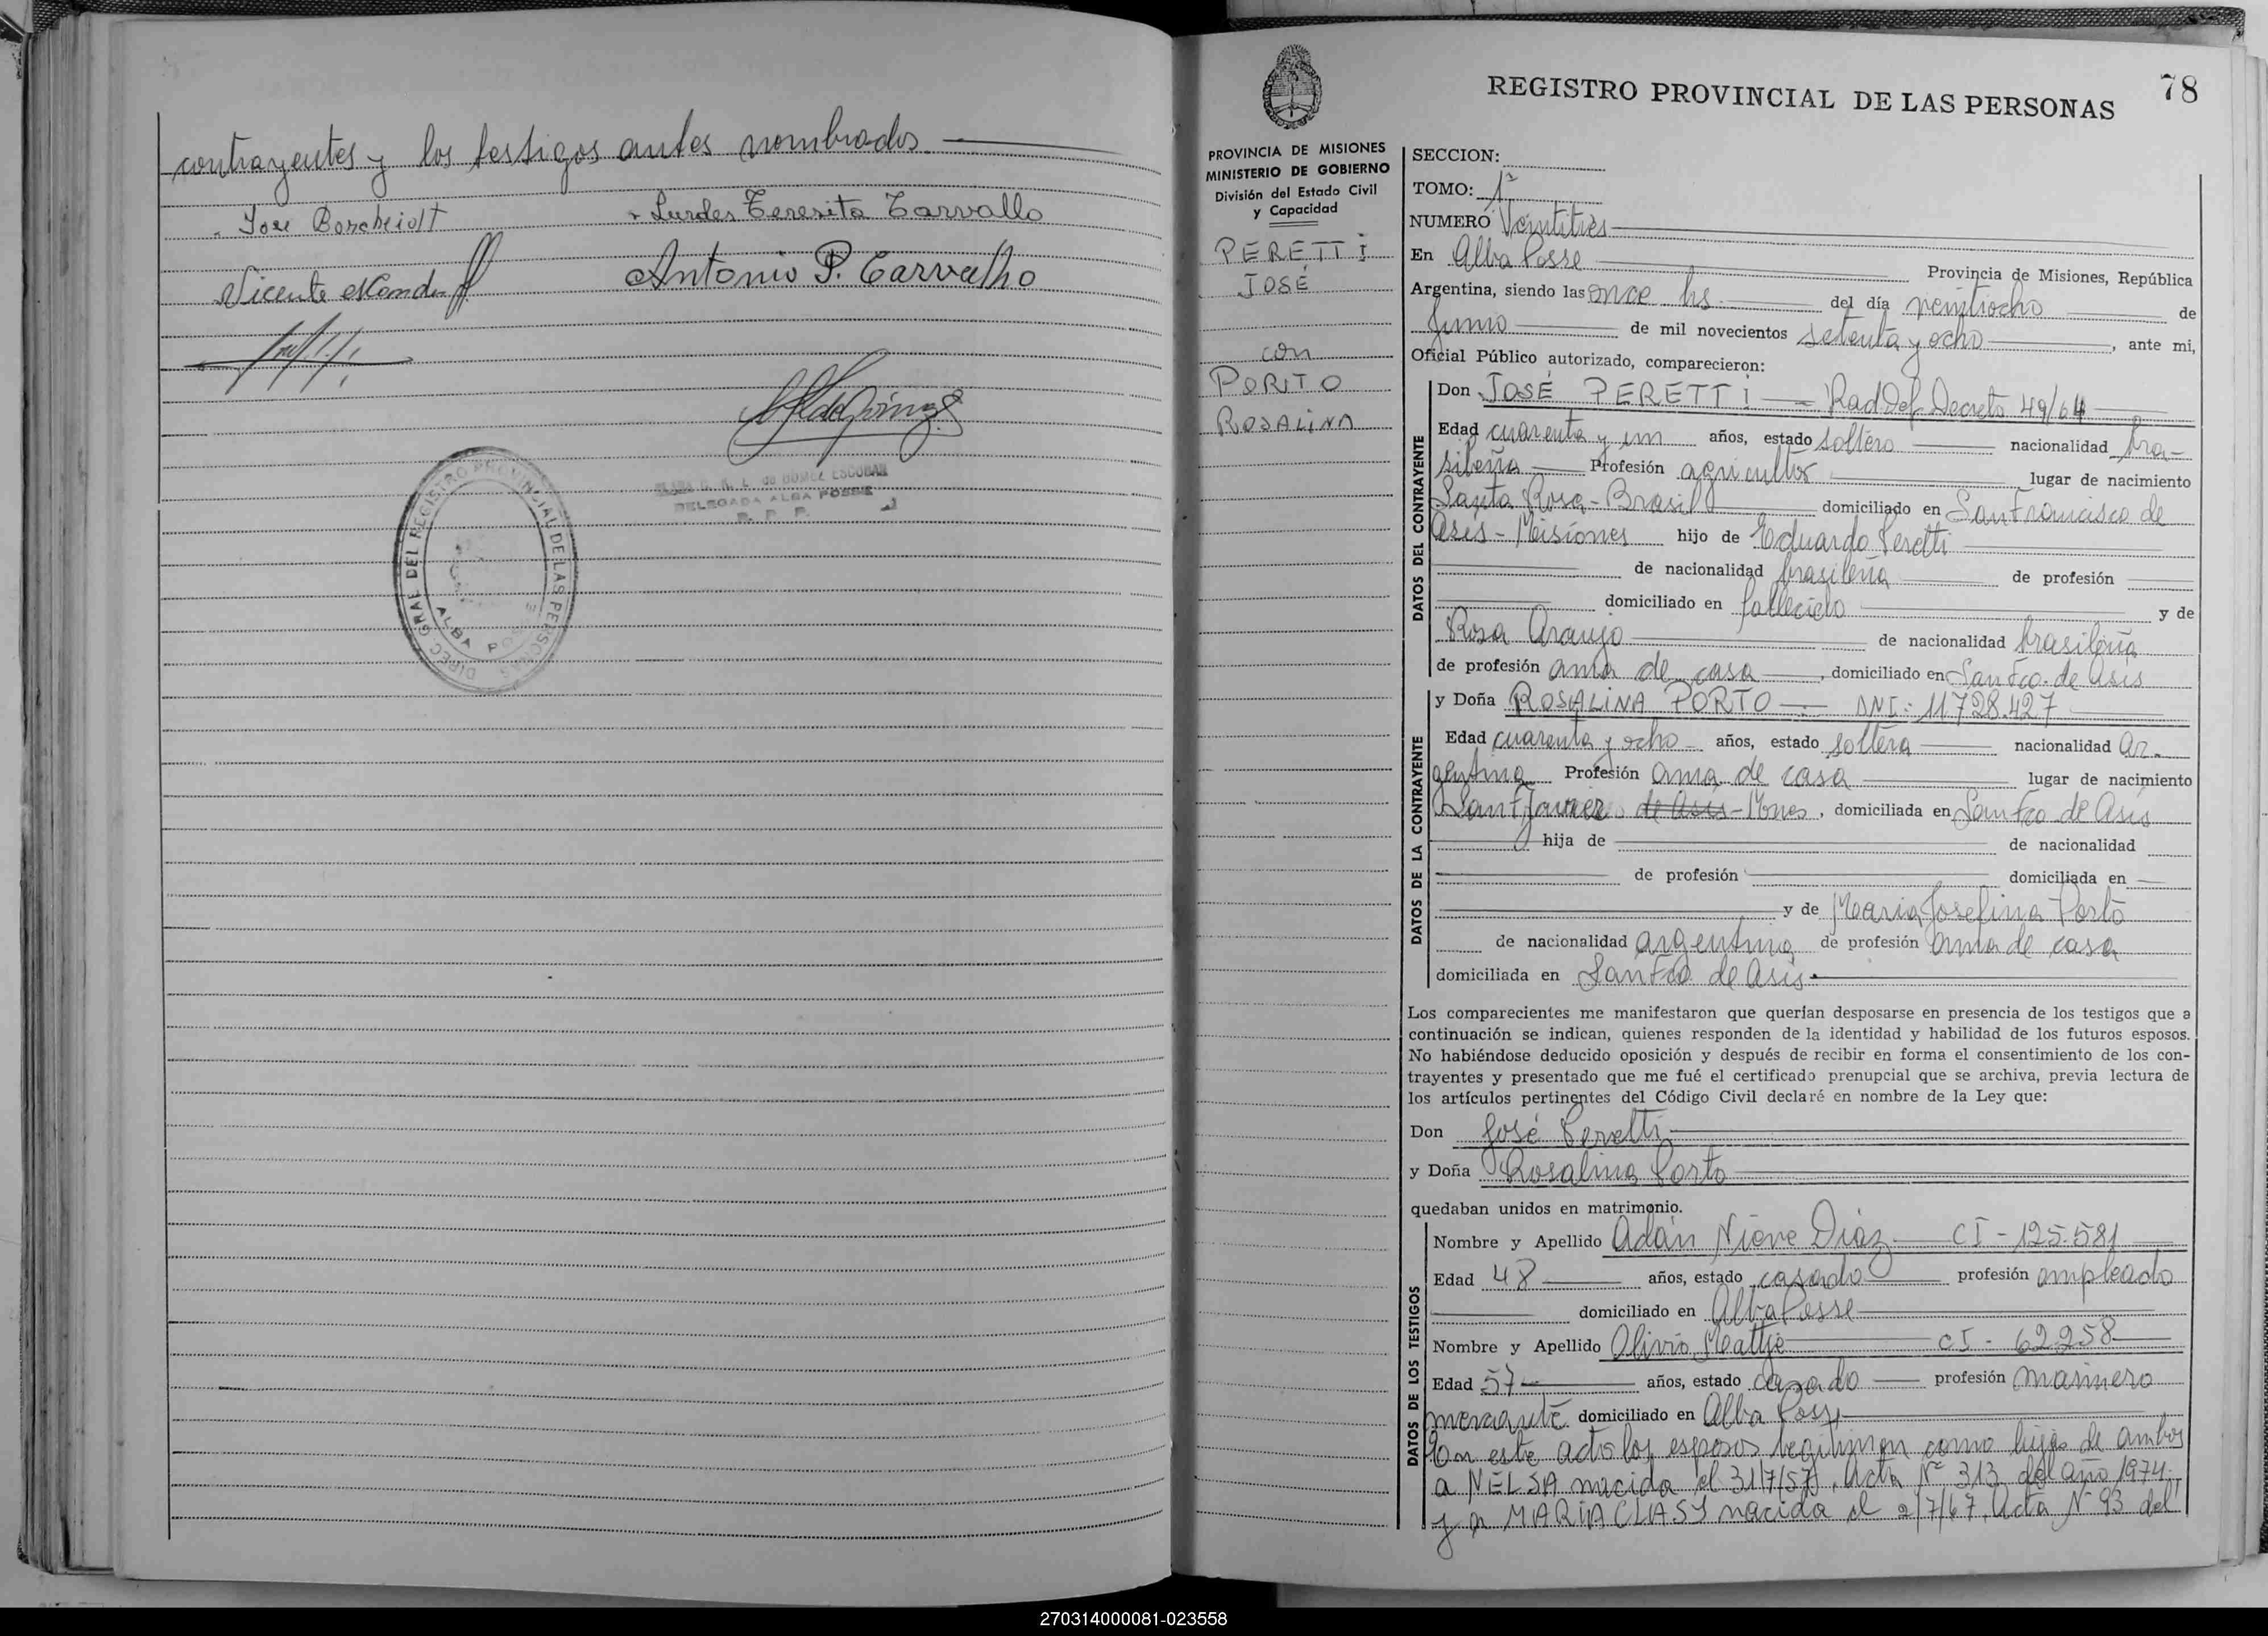 contrayentes y los testigos antes nombrados.
Jose Borcheidt
Lurdes Teresita Carvallo
Vicente
Antonio P. Carvalho
DELEGADA ALBA POSSE
R. P. P.
DIREC. GRAL DEL REGISTRO PROVINCIAL DE LAS PERSONAS
ALBA POSSE
REGISTRO PROVINCIAL DE LAS PERSONAS
78
PROVINCIA DE MISIONES
MINISTERIO DE GOBIERNO
División del Estado Civil
y Capacidad
PERETTI
JOSÉ
con
PORITO
ROSALINA
SECCION:
TOMO: 1º
NUMERO Veintitrés
En Alba Posse Provincia de Misiones, República
Argentina, siendo las once hs. del día veintiocho de
Junio de mil novecientos setenta y ocho, ante mi,
Oficial Público autorizado, comparecieron:
DATOS DEL CONTRAYENTE
Don JOSÉ PERETTI - Rad.Def. Decreto 49/64
Edad cuarenta y un años, estado soltero nacionalidad bra-
sileña Profesión agricultor lugar de nacimiento
Santa Rosa - Brasil domiciliado en San Francisco de
Asís - Misiones hijo de Eduardo Peretti
de nacionalidad brasileña de profesión
domiciliado en fallecido y de
Rosa Araujo de nacionalidad brasileña
de profesión ama de casa, domiciliado en San Fco. de Asís
DATOS DE LA CONTRAYENTE
y Doña ROSALINA PORTO - DNI: 11.728.427
Edad cuarenta y ocho años, estado soltera nacionalidad ar-
gentina Profesión ama de casa lugar de nacimiento
San Javier de Asís - Mnes, domiciliada en San Fco de Asís
hija de de nacionalidad
de profesión domiciliada en
y de Maria Josefina Porto
de nacionalidad argentina de profesión ama de casa
domiciliada en San Fco de Asís.
Los comparecientes me manifestaron que querían desposarse en presencia de los testigos que a
continuación se indican, quienes responden de la identidad y habilidad de los futuros esposos.
No habiéndose deducido oposición y después de recibir en forma el consentimiento de los con-
trayentes y presentado que me fué el certificado prenupcial que se archiva, previa lectura de
los artículos pertinentes del Código Civil declaré en nombre de la Ley que:
Don José Peretti
y Doña Rosalina Porto
quedaban unidos en matrimonio.
DATOS DE LOS TESTIGOS
Nombre y Apellido Adán Nieve Díaz CI - 125.581
Edad 48 años, estado casado profesión empleado
domiciliado en Alba Posse
Nombre y Apellido Olivio Mattje CI - 62258
Edad 57 años, estado casado profesión marinero
mercante domiciliado en Alba Posse
En este acto los esposos legitiman como hijas de ambos
a NELSA nacida el 31/7/57, Acta Nº 313 del año 1974;
y a MARIA CLASI nacida el 2/7/67, Acta Nº 93 del
270314000081-023558